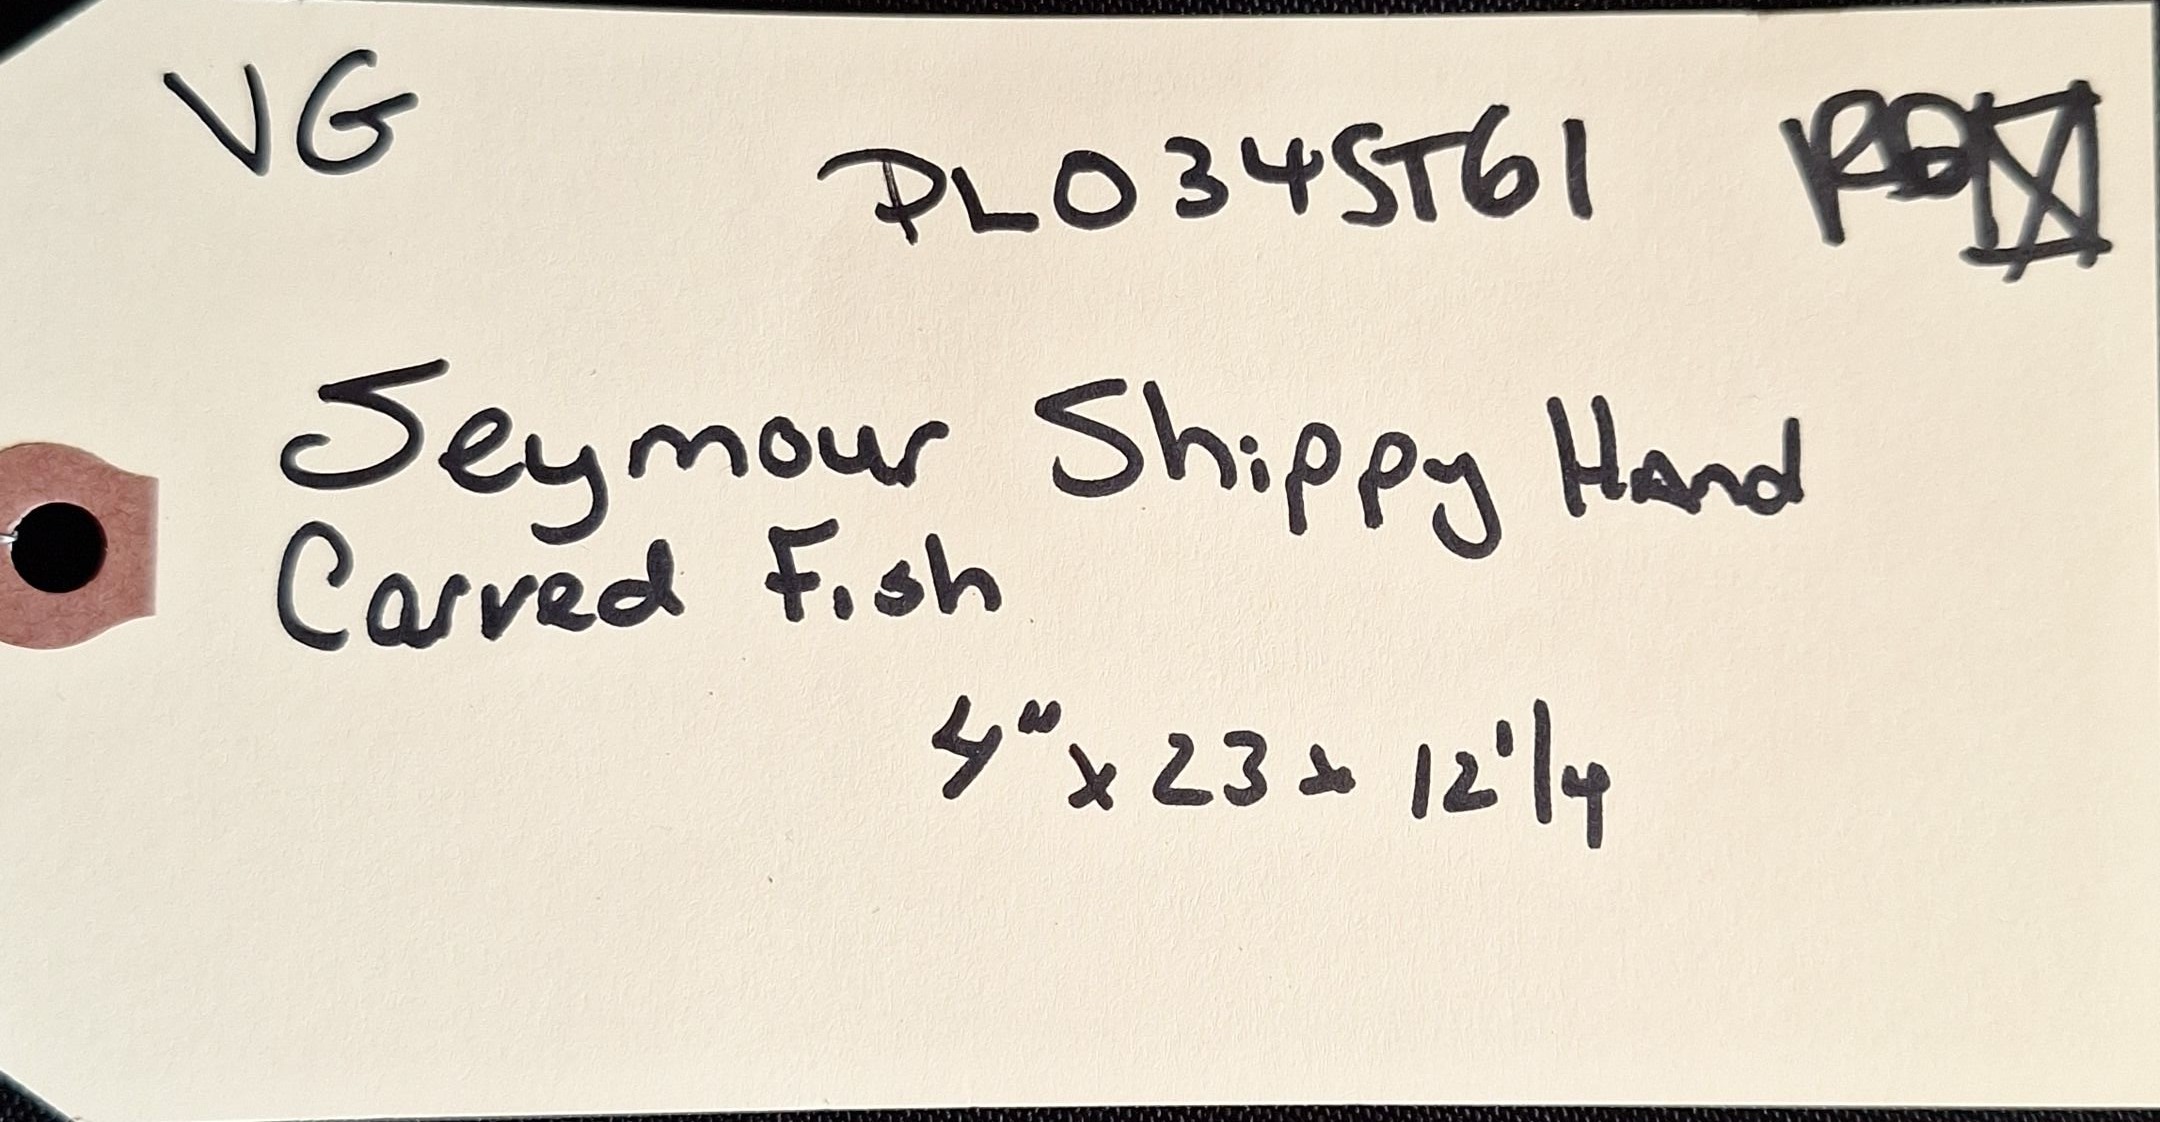 VG
PL034ST61
Seymour Shippy Hand
Carved Fish
4" x 23 x 12 1/4